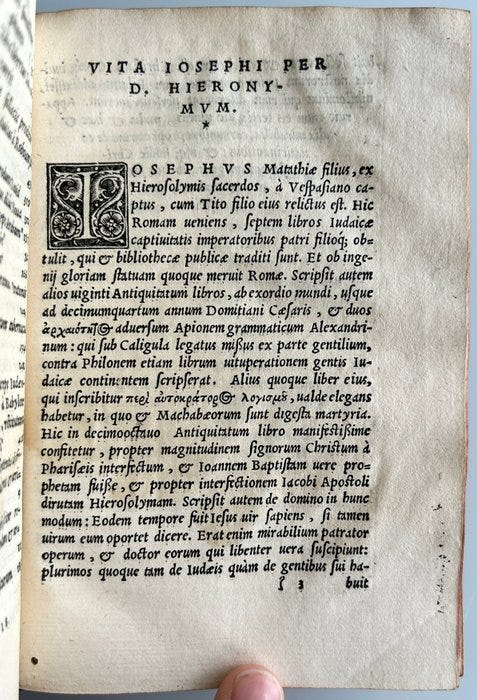 VITA IOSEPHI PER
D. HIERONY-
MVM.
*
IOSEPHVS Matathiæ filius, ex
Hierosolymis sacerdos, à Vespasiano ca-
ptus, cum Tito filio eius relictus est. Hic
Romam ueniens, septem libros Iudaicæ
captiuitatis imperatoribus patri filioq; ob-
tulit, qui & bibliothecæ publicæ traditi sunt. Et ob inge-
nij gloriam statuam quoque meruit Romæ. Scripsit autem
alios uiginti Antiquitatum libros, ab exordio mundi, usque
ad decimumquartum annum Domitiani Cæsaris, & duos
ἀρχαιότητος aduersum Apionem grammaticum Alexandri-
num: qui sub Caligula legatus missus ex parte gentilium,
contra Philonem etiam librum uituperationem gentis Iu-
daicæ continentem scripserat. Alius quoque liber eius,
qui inscribitur περὶ αὐτοκράτορος λογισμοῦ, ualde elegans
habetur, in quo & Machabæorum sunt digesta martyria.
Hic in decimooctauo Antiquitatum libro manifestissime
confitetur, propter magnitudinem signorum Christum à
Pharisæis interfectum, & Ioannem Baptistam uere pro-
phetam fuisse, & propter interfectionem Iacobi Apostoli
dirutam Hierosolymam. Scripsit autem de domino in hunc
modum: Eodem tempore fuit Iesus uir sapiens, si tamen
uirum eum oportet dicere. Erat enim mirabilium patrator
operum, & doctor eorum qui libenter uera suscipiunt:
plurimos quoque tam de Iudæis quàm de gentibus sui ha-
ſ 3 buit